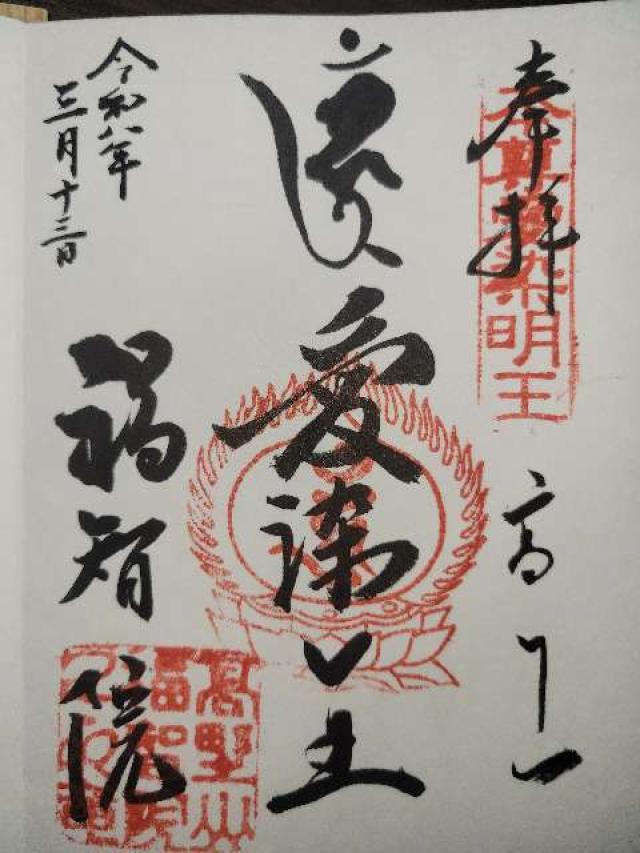 奉拝
本尊愛染明王
高野山
愛染明王
令和八年
三月十三日
福智院
高野山
福智院